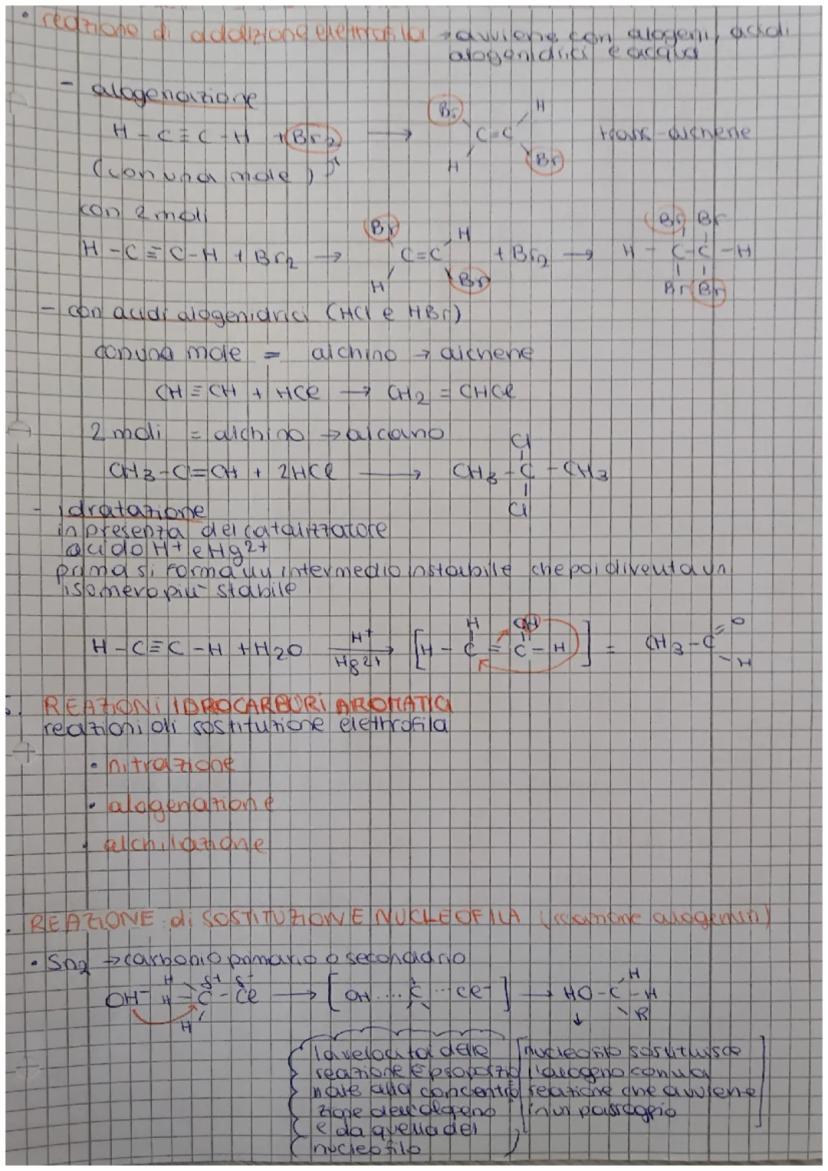 • reazione di addizione elettrofila → avviene con alogeni, acidi
alogenidrici e acqua
- alogenazione
H - C ≡ C - H + Br2 → Br H C = C H Br trans-alchene
(con una mole)
con 2 moli
H - C ≡ C - H + Br2 → Br H C = C H Br + Br2 → H - C - C - H Br Br Br Br
- con acidi alogenidrici (HCl e HBr)
con una mole = alchino → alchene
CH ≡ CH + HCl → CH2 = CHCl
2 moli = alchino → alcano
CH3 - C = CH + 2HCl → CH3 - C - CH3 Cl Cl
- idratazione
in presenza del catalizzatore
acido H+ e Hg2+
prima si forma un intermedio instabile che poi diventa un
isomero più stabile
H - C ≡ C - H + H2O H+ Hg2+ → [H - C = C - H] H OH = CH3 - C = O - H
REAZIONI IDROCARBURI AROMATICI
reazioni di sostituzione elettrofila
• nitrazione
• alogenazione
• alchilazione
. REAZIONE di SOSTITUZIONE NUCLEOFILA
• Sn2 → carbonio primario o secondario
OH- H H H C δ+ - Cl δ- → [OH .... C ... Cl-] → HO - C - H H R
la velocità della
reazione è proporzio
nale alla concentra
zione dell'alogeno
e da quella del
nucleofilo
nucleofilo sostituisce
l'alogeno con una
reazione che avviene
in un passaggio